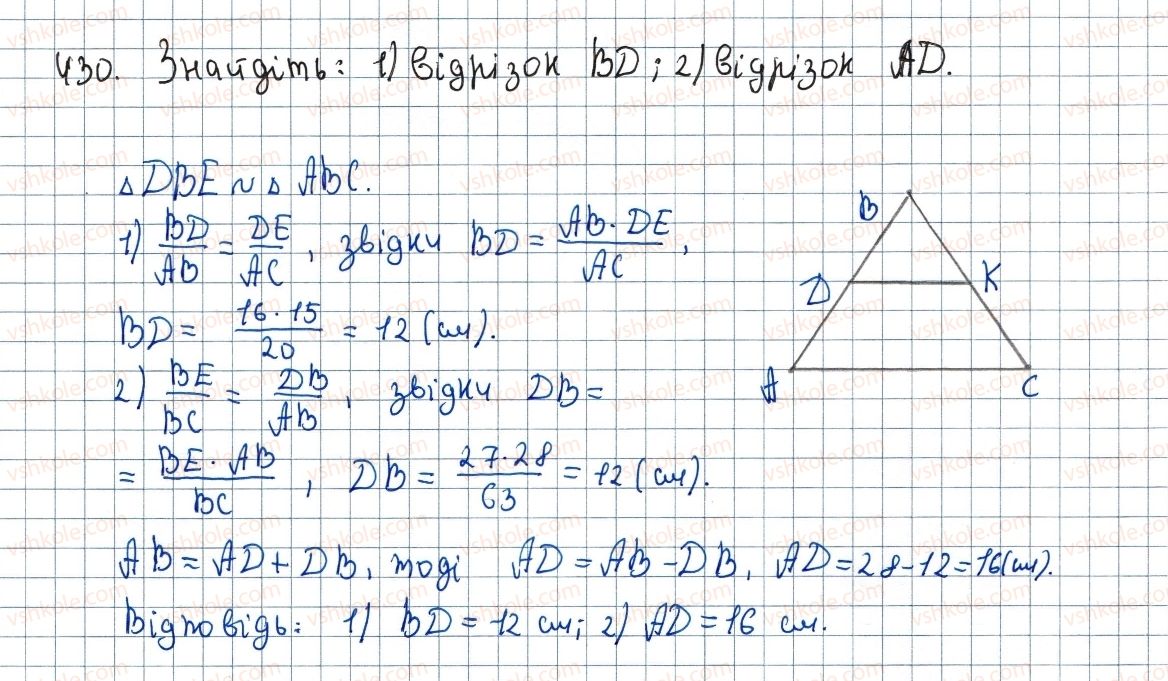 430. Знайдіть: 1) відрізок BD; 2) відрізок AD.
△DBE ~ △ABC.
1) BD/AB = DE/AC, звідки BD = AB·DE/AC,
BD = 16·15/20 = 12 (см).
2) BE/BC = DB/AB, звідки DB =
= BE·AB/BC, DB = 27·28/63 = 12 (см).
AB = AD + DB, тоді AD = AB - DB, AD = 28-12=16(см).
Відповідь: 1) BD = 12 см; 2) AD = 16 см.
B
D
K
A
C